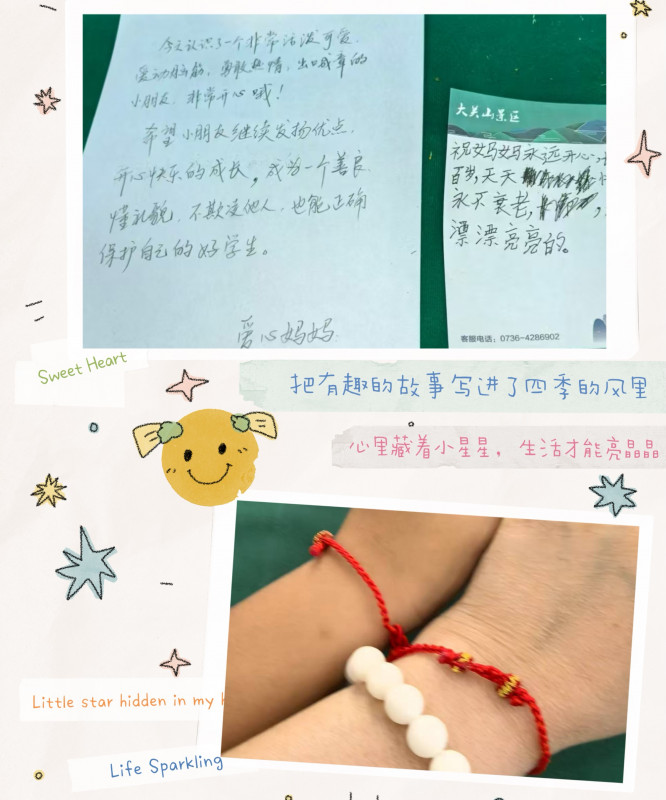 今天认识了一个非常活泼可爱，
爱动脑筋，勇敢热情，出口成章的
小朋友，非常开心哦！
希望小朋友继续发扬优点，
开心快乐的成长，成为一个善良
懂礼貌，不欺凌他人，也能正确
保护自己的好学生。
爱心妈妈
大关山景区
祝妈妈永远开心，
百岁，天天
永不衰老，
漂漂亮亮的。
客服电话：0736-4286902
Sweet Heart
把有趣的故事写进了四季的风里
心里藏着小星星，生活才能亮晶晶
Little star hidden in my
Life Sparkling